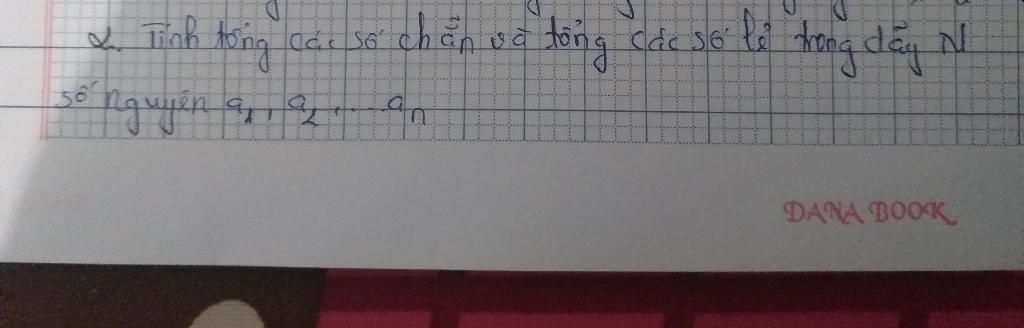 2. Tính tổng các số chẵn và tổng các số lẻ trong dãy N
số nguyên a1, a2, ... an
DANA BOOK